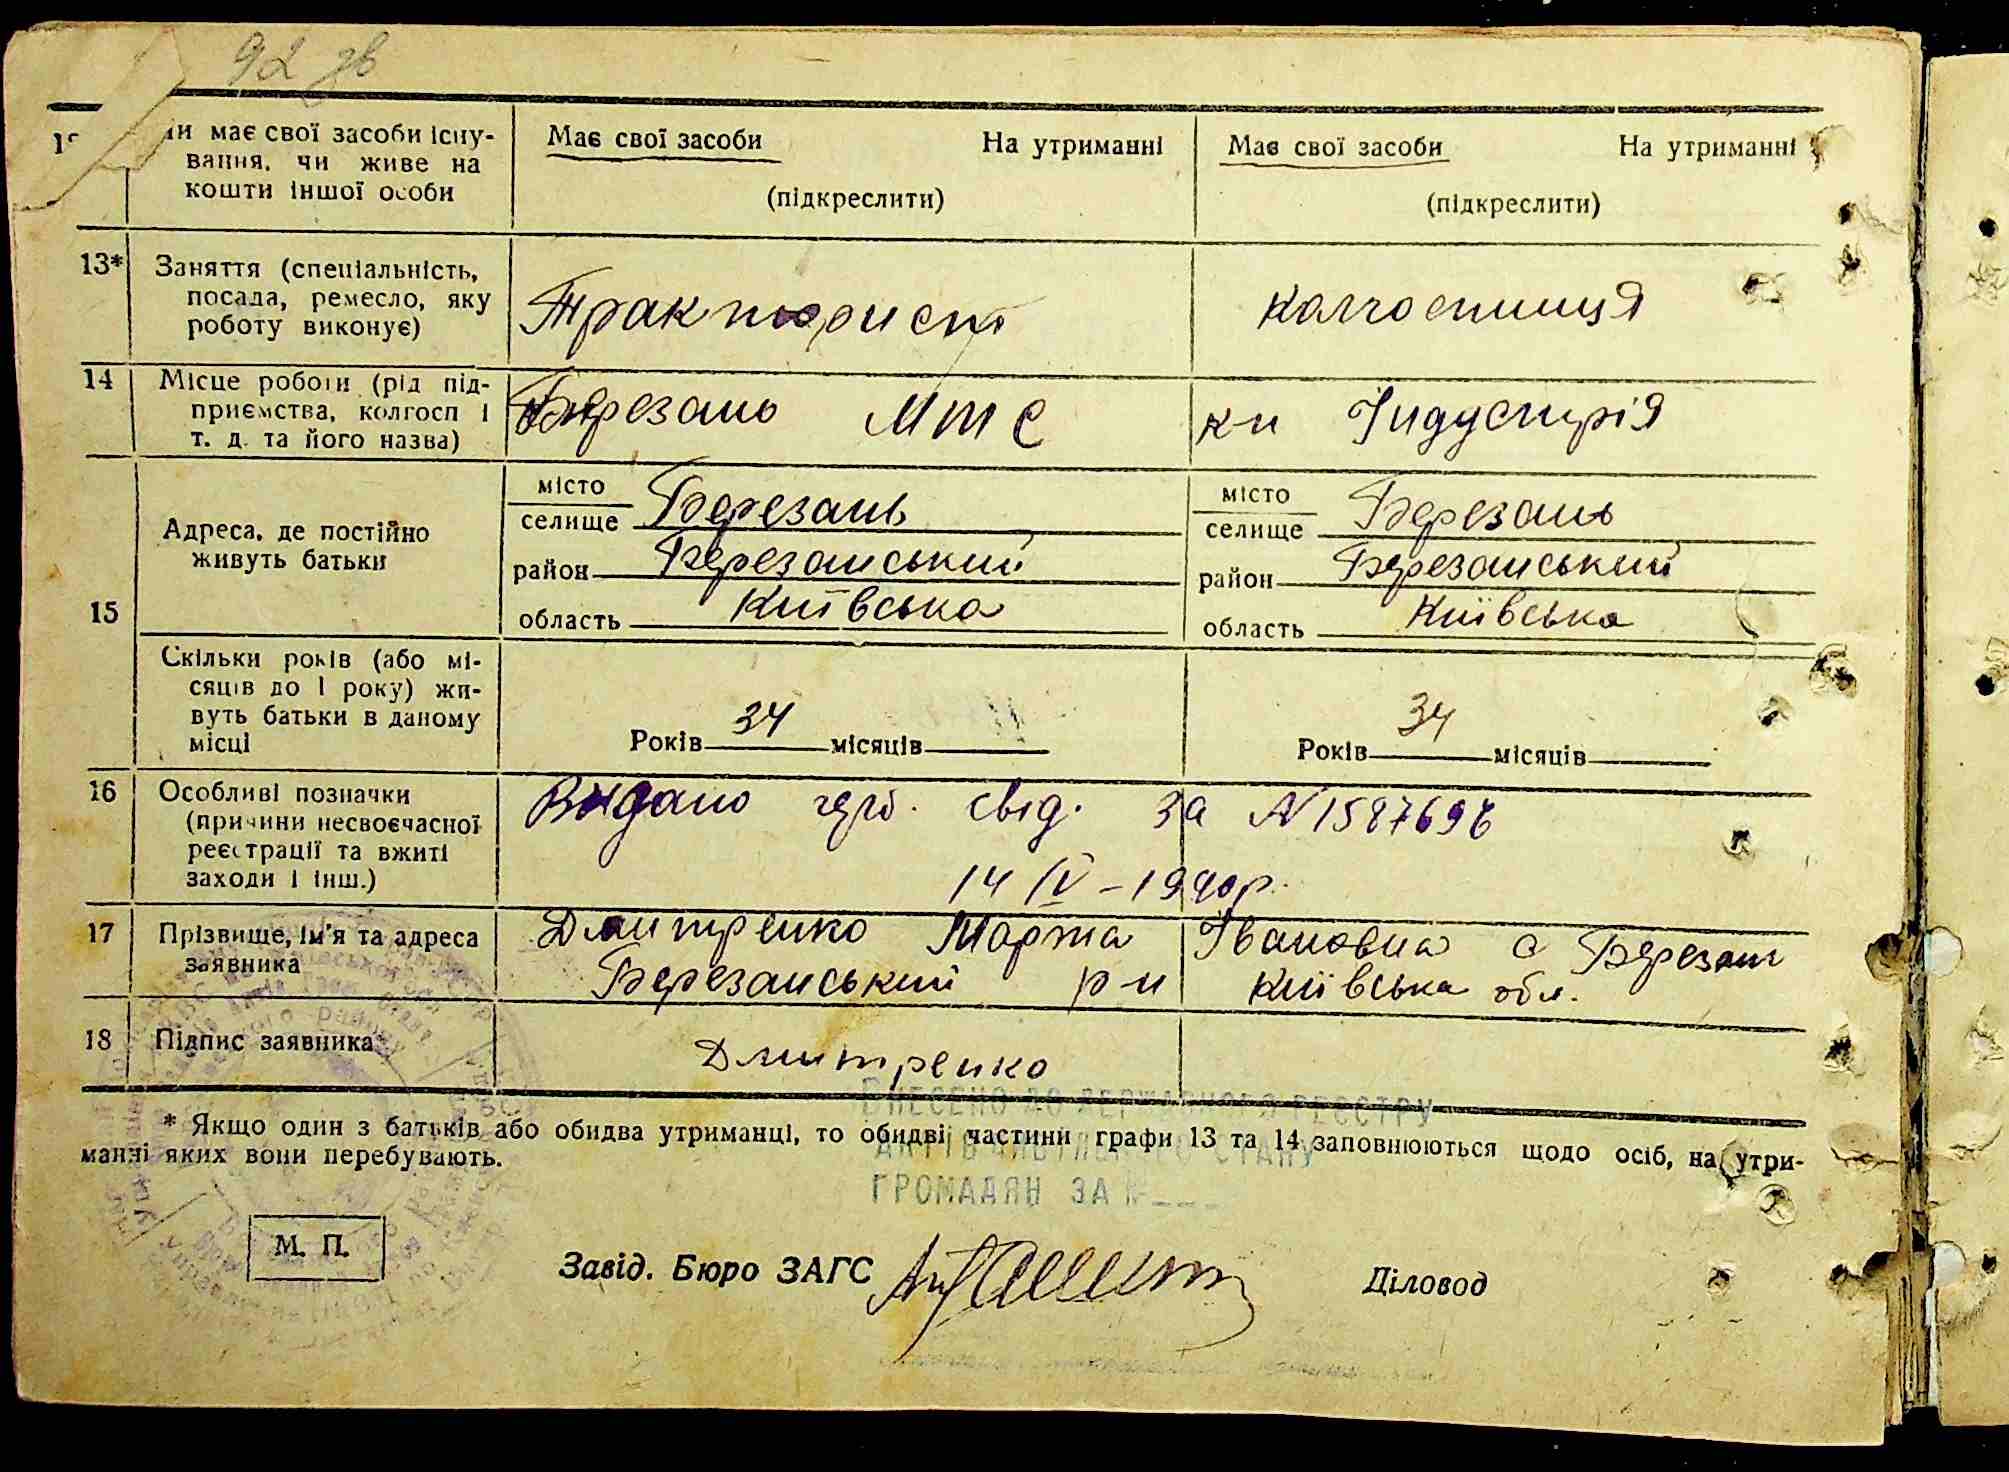 92 зв
чи має свої засоби існу-
вання, чи живе на
кошти іншої особи
Має свої засоби На утриманні
(підкреслити)
Має свої засоби На утриманні
(підкреслити)
13* Заняття (спеціальність,
посада, ремесло, яку
роботу виконує)
Тракторист
колгоспниця
14 Місце роботи (рід під-
приємства, колгосп і
т. д. та його назва)
Березань МТС
к-п Індустрія
15
Адреса, де постійно
живуть батьки
місто
селище Березань
район Березанський
область Київська
місто
селище Березань
район Березанський
область Київська
Скільки років (або мі-
сяців до 1 року) жи-
вуть батьки в даному
місці
Років 34 місяців
Років 34 місяців
16 Особливі позначки
(причини несвоєчасної
реєстрації та вжиті
заходи і інш.)
Видано герб. свід. за N
14 IV - 1940 р.
17 Прізвище, ім'я та адреса
заявника
Дмитренко Марта Івановна с Березань
Березанський р-н Київська обл.
18 Підпис заявника
Дмитренко
ВНЕСЕНО ДО ДЕРЖАВНОГО РЕЄСТРУ
* Якщо один з батьків або обидва утриманці, то обидві частини графи 13 та 14 заповнюються щодо осіб, на утри-
манні яких вони перебувають.
АКТІВ ЦИВІЛЬНОГО СТАНУ
ГРОМАДЯН ЗА №
М. П.
Завід. Бюро ЗАГС
Діловод